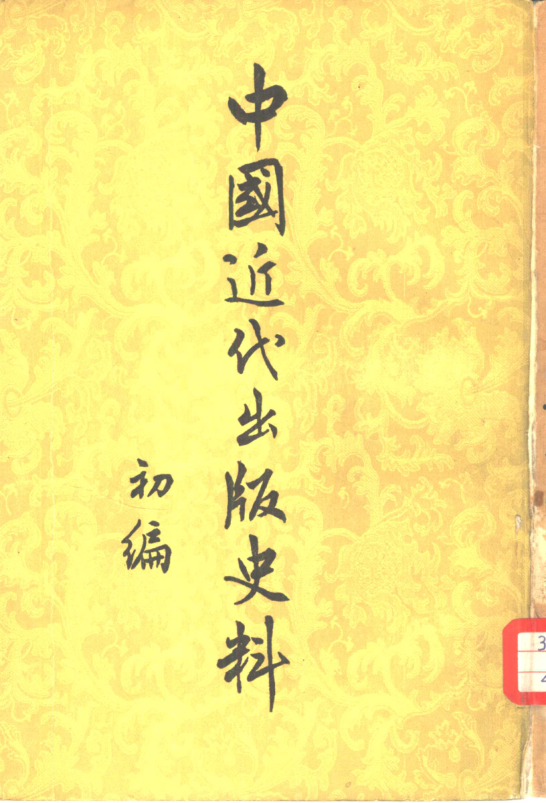 中國近代出版史料
初編
3
4